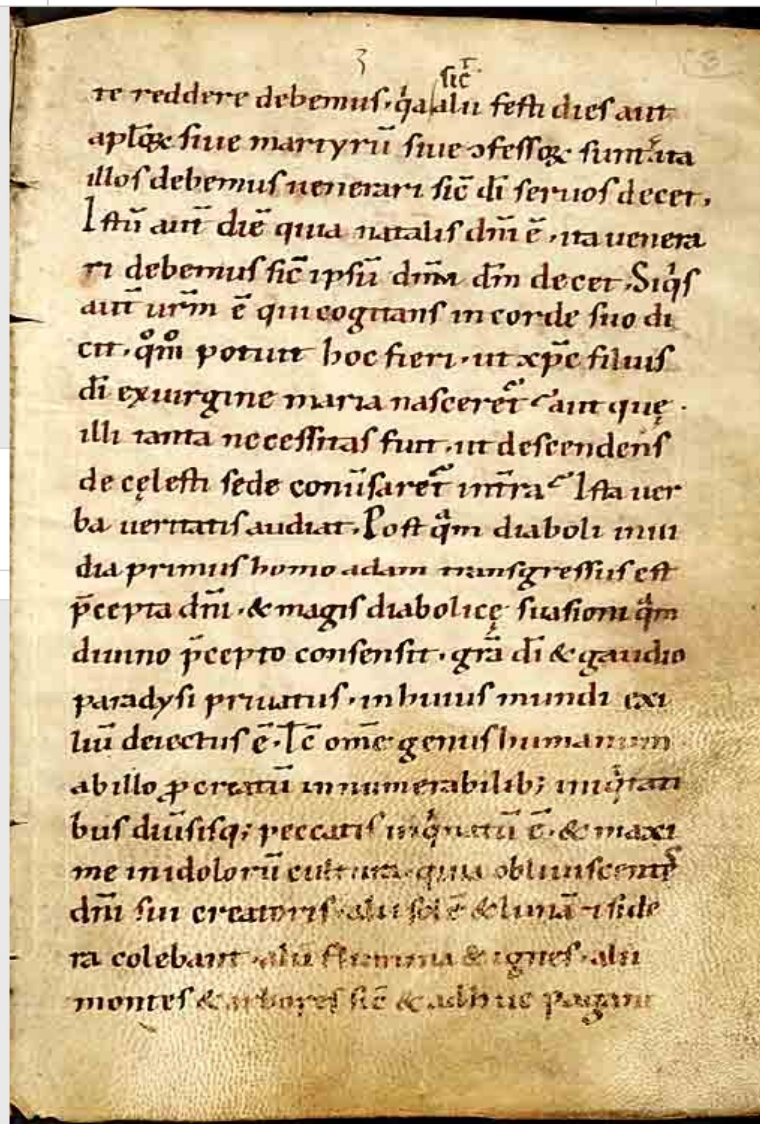 3
sic̄
3
te reddere debemus. q̓a alii festi dies aut̄
apl̄oꝝ siue martyrū siue ↄfessoꝝ sunt. ita
illos debemus uenerari sic̄ dī seruos decet.
Istū aut̄ diē quia natalis dn̄i ē. ita uenera
ri debemus sic̄ ipsū dn̄m dm̄ decet. Siq̓s
aut̄ ur̄m ē qui cogitans in corde suo di
cit. qͦm̊ potuit hoc fieri. ut xp̄c filius
dī ex uirgine maria nasceret᷑ aut quę
illi tanta necessitas fuit. ut descendens
de cęlesti sede conūsaret᷑ in t̄ra Ista uer
ba ueritatis audiat. Post qͣm diaboli inui
dia primus homo adam transgressus est
p̄cepta dn̄i. & magis diabolicę suasioni qͣm
diuino p̄cepto consensit. gr̄a dī & gaudio
paradysi priuatus. in huius mundi exi
liū deiectus ē. Ic̄ om̄e genus humanum
ab illo ꝓcreatū innumerabilib; iniq̓tati
bus diūsisq; peccatis inq̓natū ē. & maxi
me in idolorū cultura. quia obliuiscentes
dn̄i sui creatoris. alii solē & lunā & side
ra colebant. alii flumina & ignes. alii
montes & arbores sic̄ & adhuc pagani